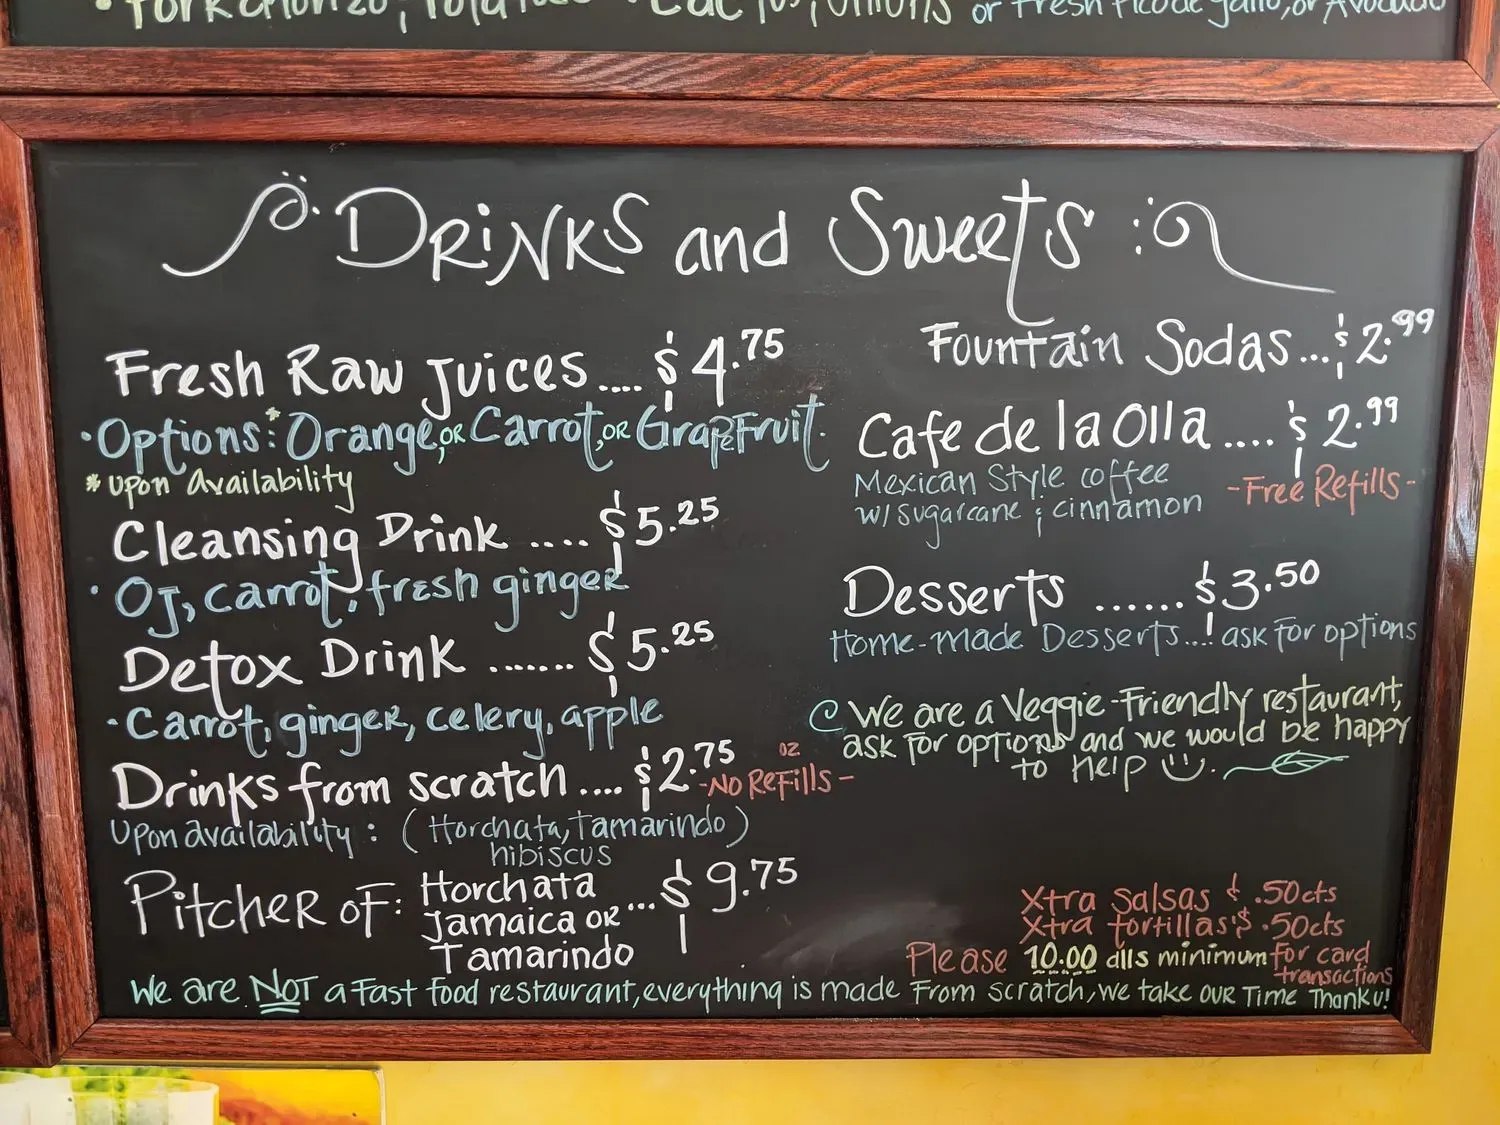 or Fresh Pico de gallo, or Avocado
DRiNKS and Sweets
Fresh Raw Juices.... $4.75
·Options:* Orange, OR Carrot, OR GrapeFruit.
*upon Availability
Cleansing Drink .... $5.25
· OJ, carrot, fresh ginger
Detox Drink ....... $5.25
·Carrot, ginger, celery, apple
Drinks from scratch .... $2.75 -No Refills-
oz
Upon availability: (Horchata, Tamarindo)
hibiscus
Pitcher of: Horchata
Jamaica or ... $9.75
Tamarindo
Fountain Sodas... $2.99
Cafe de la Olla .... $2.99
Mexican Style coffee
w/ sugarcane ; cinnamon
-Free Refills-
Desserts ...... $3.50
Home-made Desserts... ask for options
We are a Veggie-Friendly restaurant,
ask for options and we would be happy
to help
Xtra Salsas $ .50cts
Xtra tortillas $ .50cts
Please 10.00 dlls minimum for card
transactions
We are NOT a Fast food restaurant, everything is made From scratch, we take our Time Thank u!